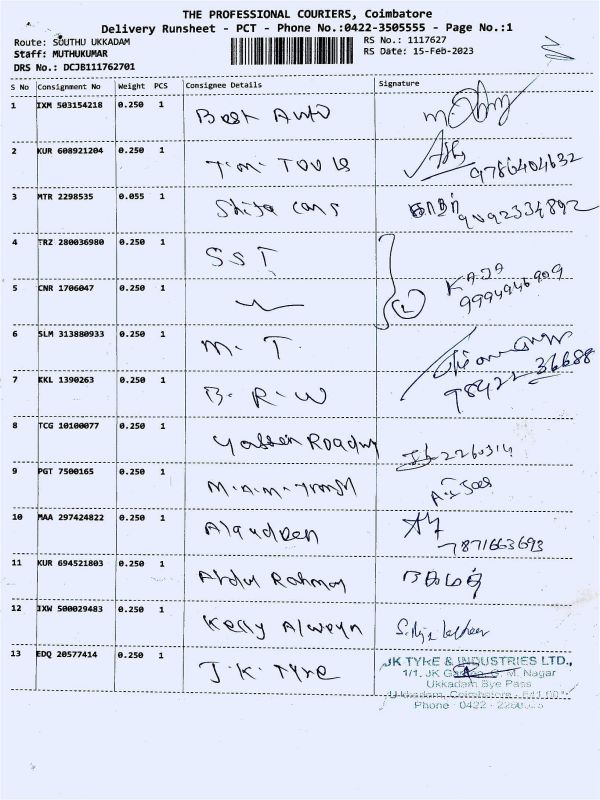 THE PROFESSIONAL COURIERS, Coimbatore
Delivery Runsheet - PCT - Phone No.:0422-3505555 - Page No.:1
Route: SOUTHU UKKADAM
RS No.: 1117627
Staff: MUTHUKUMAR
RS Date: 15-Feb-2023
DRS No.: DCJB111762701
S No Consignment No Weight PCS Consignee Details Signature
1 IXM 503154218 0.250 1 Best Auto
2 KUR 608921204 0.250 1 T.M. TOOLS 9786404632
3 MTR 2298535 0.055 1 Shifa cars 9092334892
4 TRZ 280036980 0.250 1 SST
KAJA
5 CNR 1706047 0.250 1 9994946909
6 SLM 313880933 0.250 1 M. T.
7 KKL 1390263 0.250 1 B. R. W 98422 36688
8 TCG 10100077 0.250 1 Yassen Roadwy 2260314
9 PGT 7500165 0.250 1 M.A.M.
10 MAA 297424822 0.250 1 Alaudeen 7871663693
11 KUR 694521803 0.250 1 Abdul Rahman
12 IXW 500029483 0.250 1 Kelly
13 EDQ 20577414 0.250 1 J.K. Tyre
JK TYRE & INDUSTRIES LTD.,
1/1, JK Garden, G. M. Nagar
Ukkadam Bye Pass
Ukkadam, Coimbatore - 641 001
Phone : 0422 -